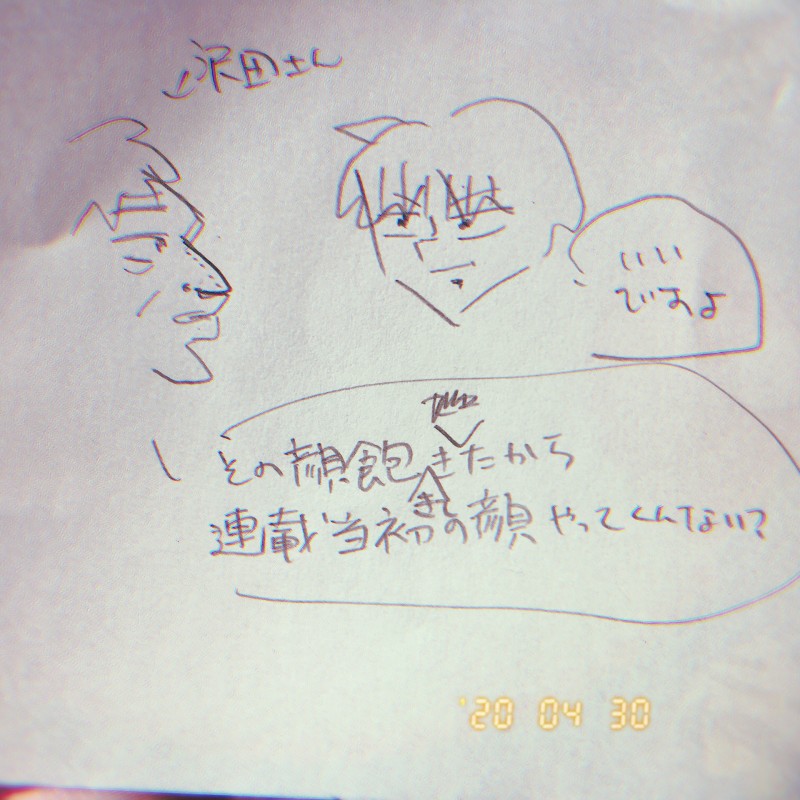 沢田さん
いい
ですよ
その顔飽きたから
きて
連載当初の顔やってくんない?
'20 04 30